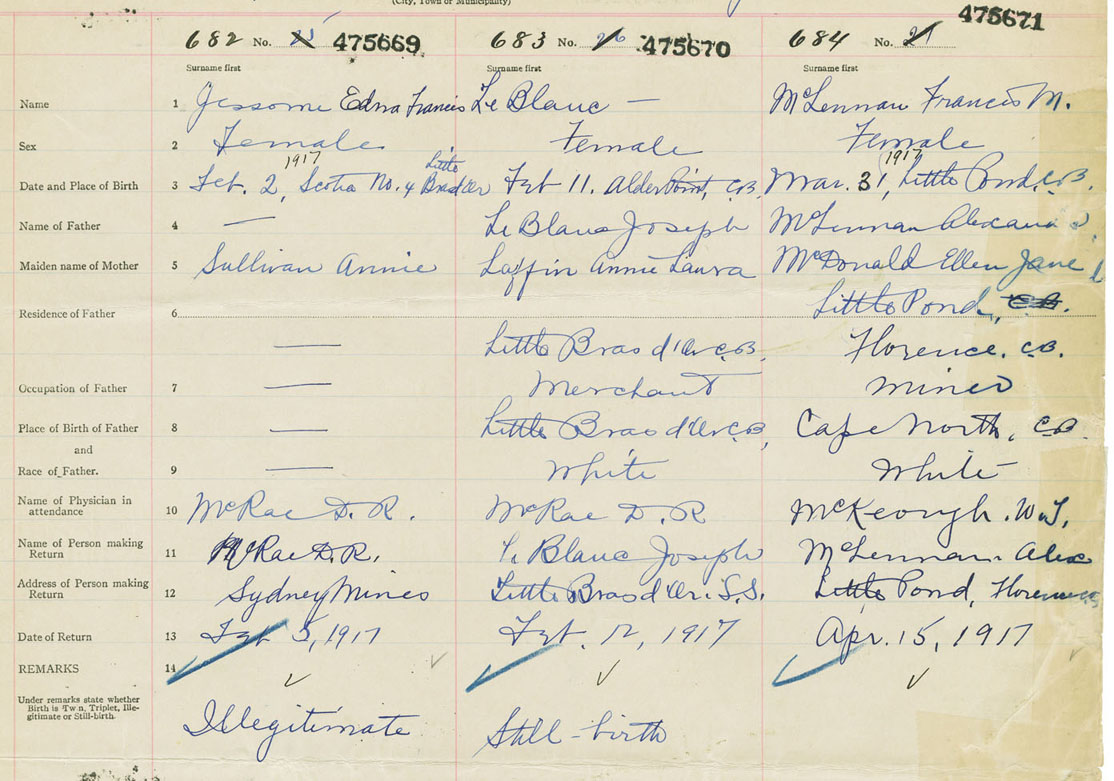 (City, Town or Municipality)
475671
682 No. 475669 683 No. 26 475670 684 No.
Surname first Surname first Surname first
Name 1 Jessome Edna Francis Le Blanc — McLennan Francis M.
Sex 2 Female Female Female
1917 Little 1917
Date and Place of Birth 3 Feb. 2, Scotia No. 4 Bras d'Or Feb 11. Alder Point, C.B. Mar. 31, Little Pond, C.B.
Name of Father 4 — Le Blanc Joseph McLennan
Maiden name of Mother 5 Sullivan Annie Laffin Annie Laura McDonald Ellen Jane
Little Pond, C.B.
Residence of Father 6
— Little Bras d'Or C.B. Florence. C.B.
Occupation of Father 7 — Merchant Miner
Place of Birth of Father 8 — Little Bras d'Or C.B, Cape North, C.B.
and
Race of Father. 9 — White White
Name of Physician in
attendance 10 McRae D. R. McRae D. R McKeough. W.J.
Name of Person making
Return 11 McRae D. R. Le Blanc Joseph McLennan. Alex
Address of Person making
Return 12 Sydney Mines Little Bras d'Or. S.S. Little Pond, Florence
Date of Return 13 Feb 5, 1917 Feb. 12, 1917 Apr. 15, 1917
REMARKS 14
Under remarks state whether
Birth is Twin, Triplet, Ille-
gitimate or Still-birth.
Illegitimate Still-birth